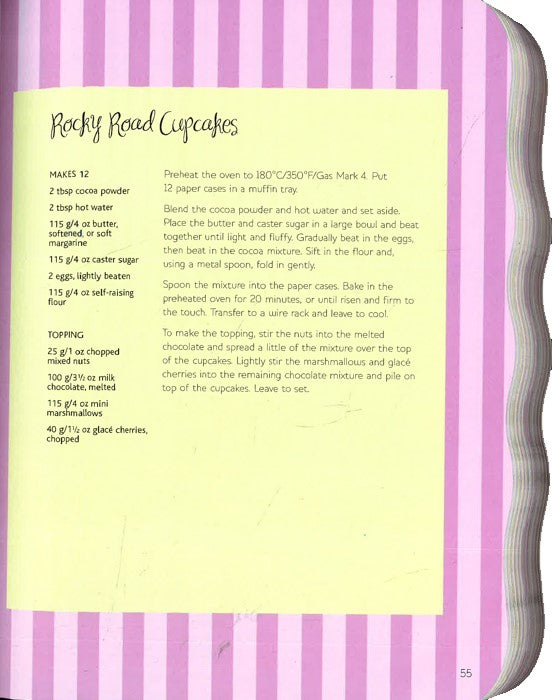 Rocky Road Cupcakes
MAKES 12
2 tbsp cocoa powder
2 tbsp hot water
115 g/4 oz butter,
softened, or soft
margarine
115 g/4 oz caster sugar
2 eggs, lightly beaten
115 g/4 oz self-raising
flour
TOPPING
25 g/1 oz chopped
mixed nuts
100 g/3½ oz milk
chocolate, melted
115 g/4 oz mini
marshmallows
40 g/1½ oz glacé cherries,
chopped
Preheat the oven to 180°C/350°F/Gas Mark 4. Put
12 paper cases in a muffin tray.
Blend the cocoa powder and hot water and set aside.
Place the butter and caster sugar in a large bowl and beat
together until light and fluffy. Gradually beat in the eggs,
then beat in the cocoa mixture. Sift in the flour and,
using a metal spoon, fold in gently.
Spoon the mixture into the paper cases. Bake in the
preheated oven for 20 minutes, or until risen and firm to
the touch. Transfer to a wire rack and leave to cool.
To make the topping, stir the nuts into the melted
chocolate and spread a little of the mixture over the top
of the cupcakes. Lightly stir the marshmallows and glacé
cherries into the remaining chocolate mixture and pile on
top of the cupcakes. Leave to set.
55